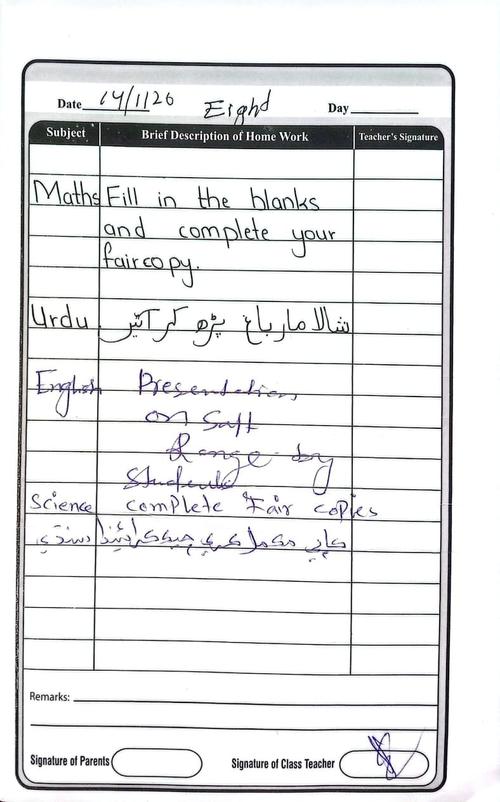 Date 14/1/26 Eighd Day
Subject Brief Description of Home Work Teacher's Signature
Maths Fill in the blanks
and complete your
faircopy.
Urdu شالا مار باغ پڑھ کر آئیں
English Presentation
on Salt
Range by
Students
Science complete Fair copies
Remarks:
Signature of Parents Signature of Class Teacher